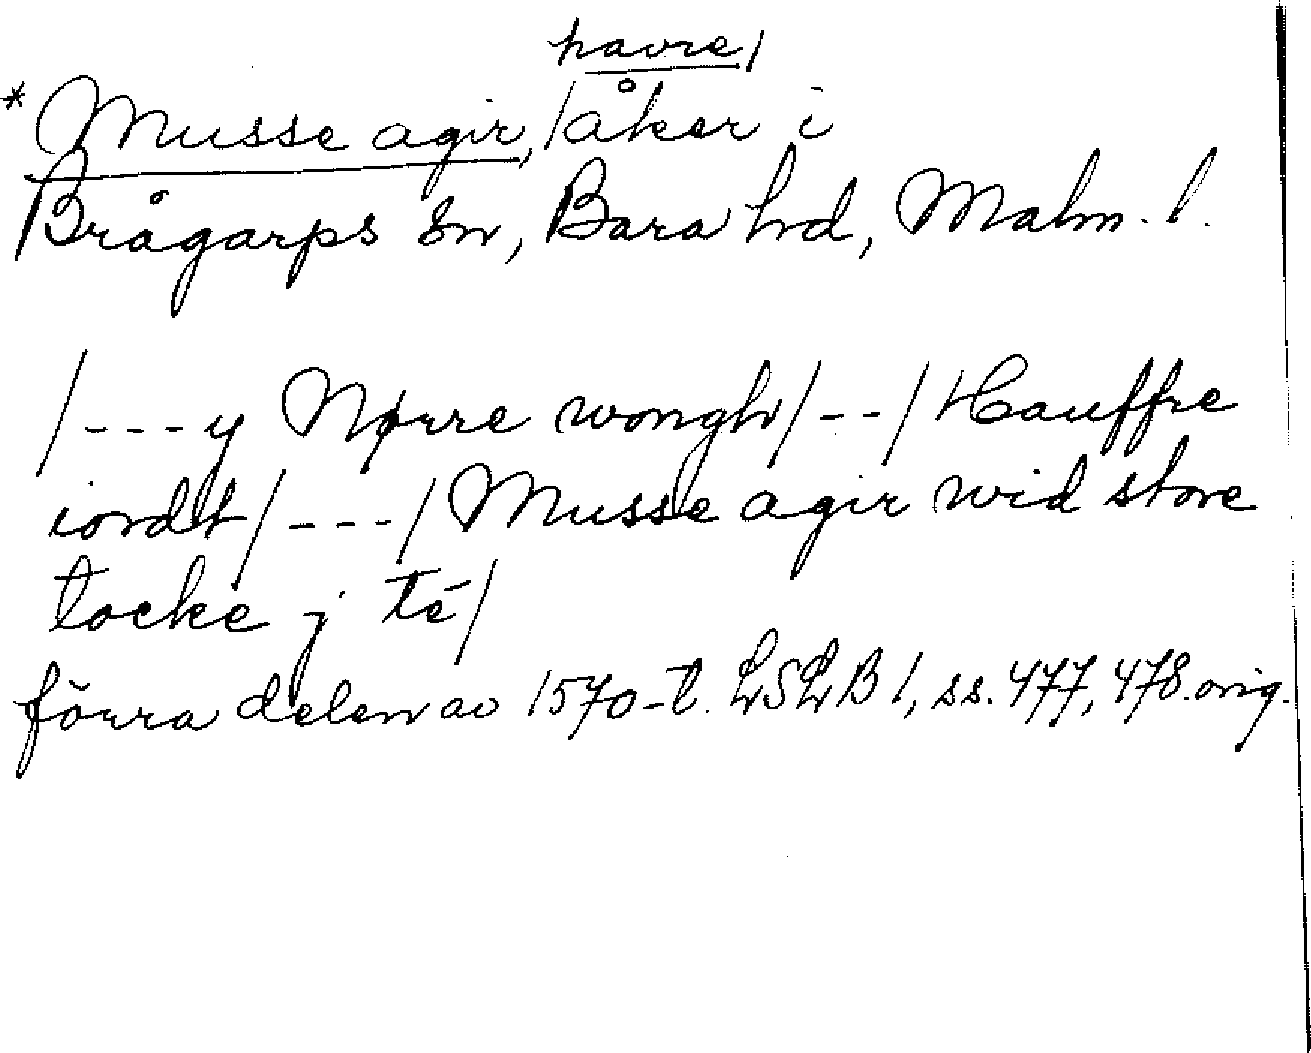 havre/
* Musse agir, /åker i
Brågarps sn, Bara hd, Malm. l.
/---y Nørre wongh/--/Hauffre
iordt/---/Musse agir wid store
tocke j té/
förra delen av 1570-t. LSLB 1, ss. 477, 478. orig.